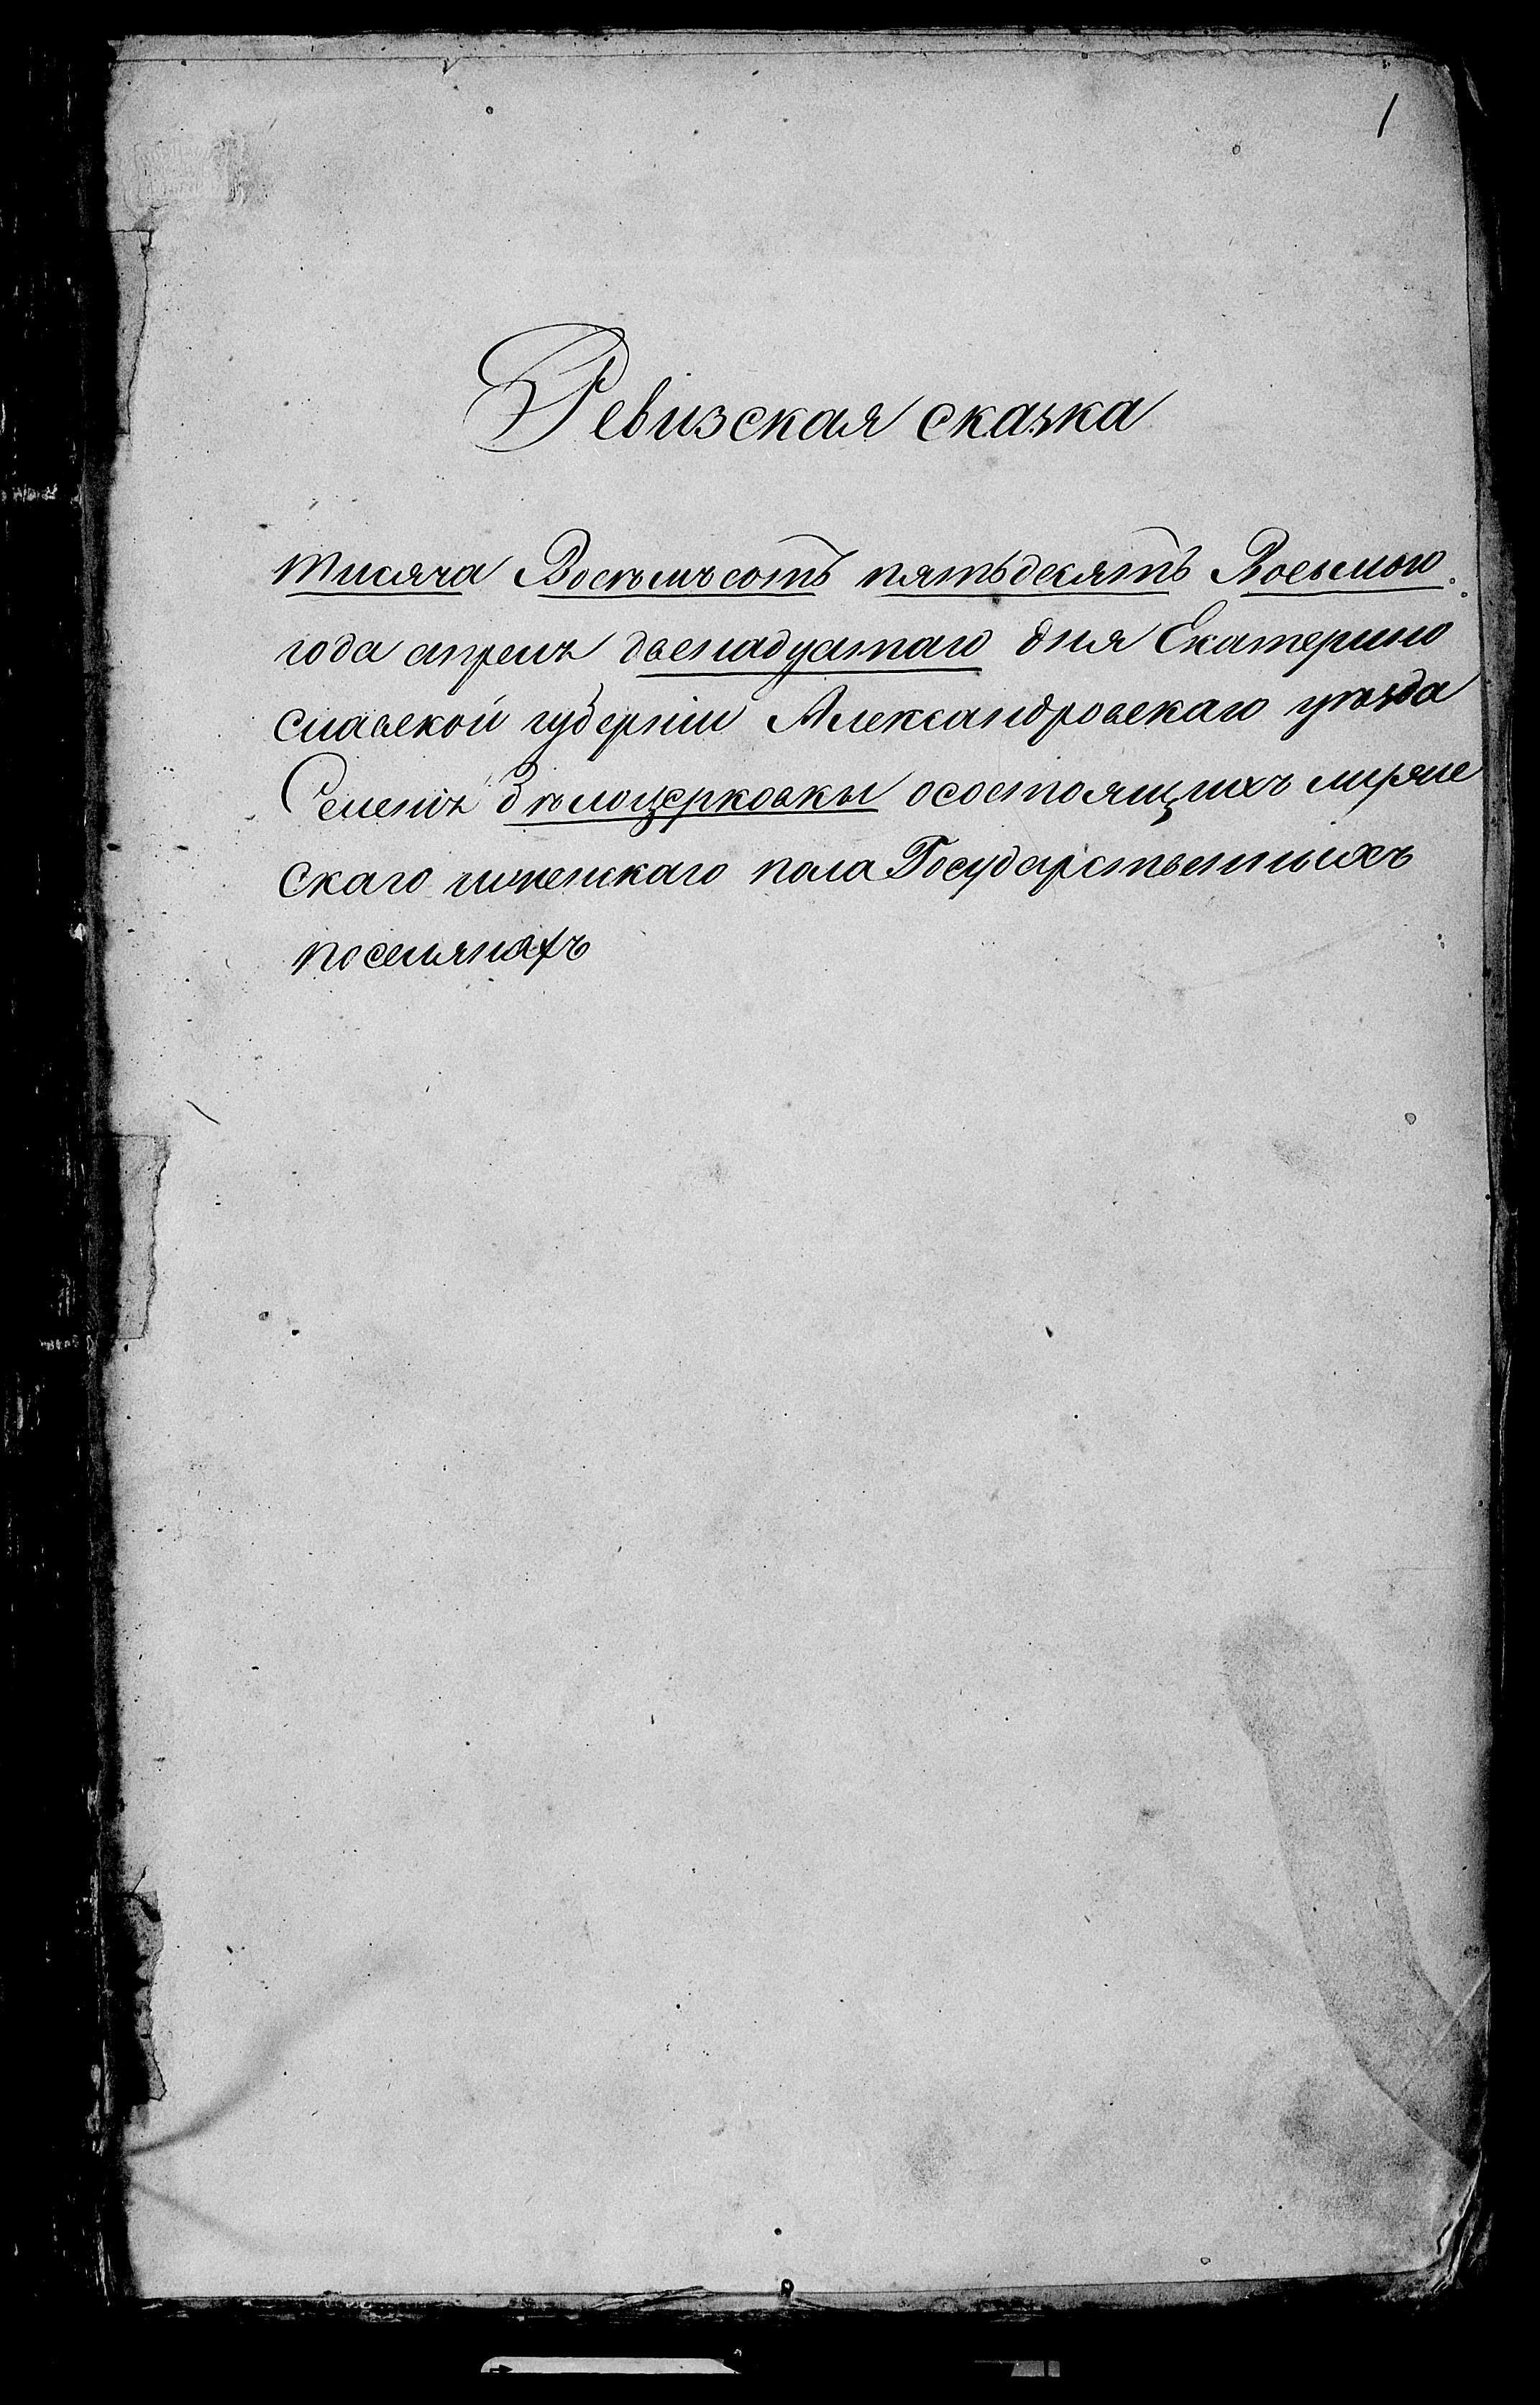 1
Ревизская сказка
тисяча Восемьсотъ пятьдесятъ Восьмого
года апреля двенадцатаго дня Екатерино
славской губерніи Александровскаго уезда
Селенія Белоцерковки осостоящихъ мужес
скаго женскаго пола Государственныхъ
поселянахъ